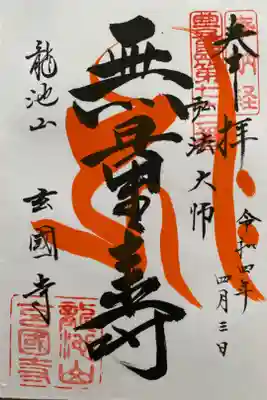 奉拝
令和四年
四月三日
弘法大師
無量壽
龍池山
玄國寺
龍池山
玄國寺